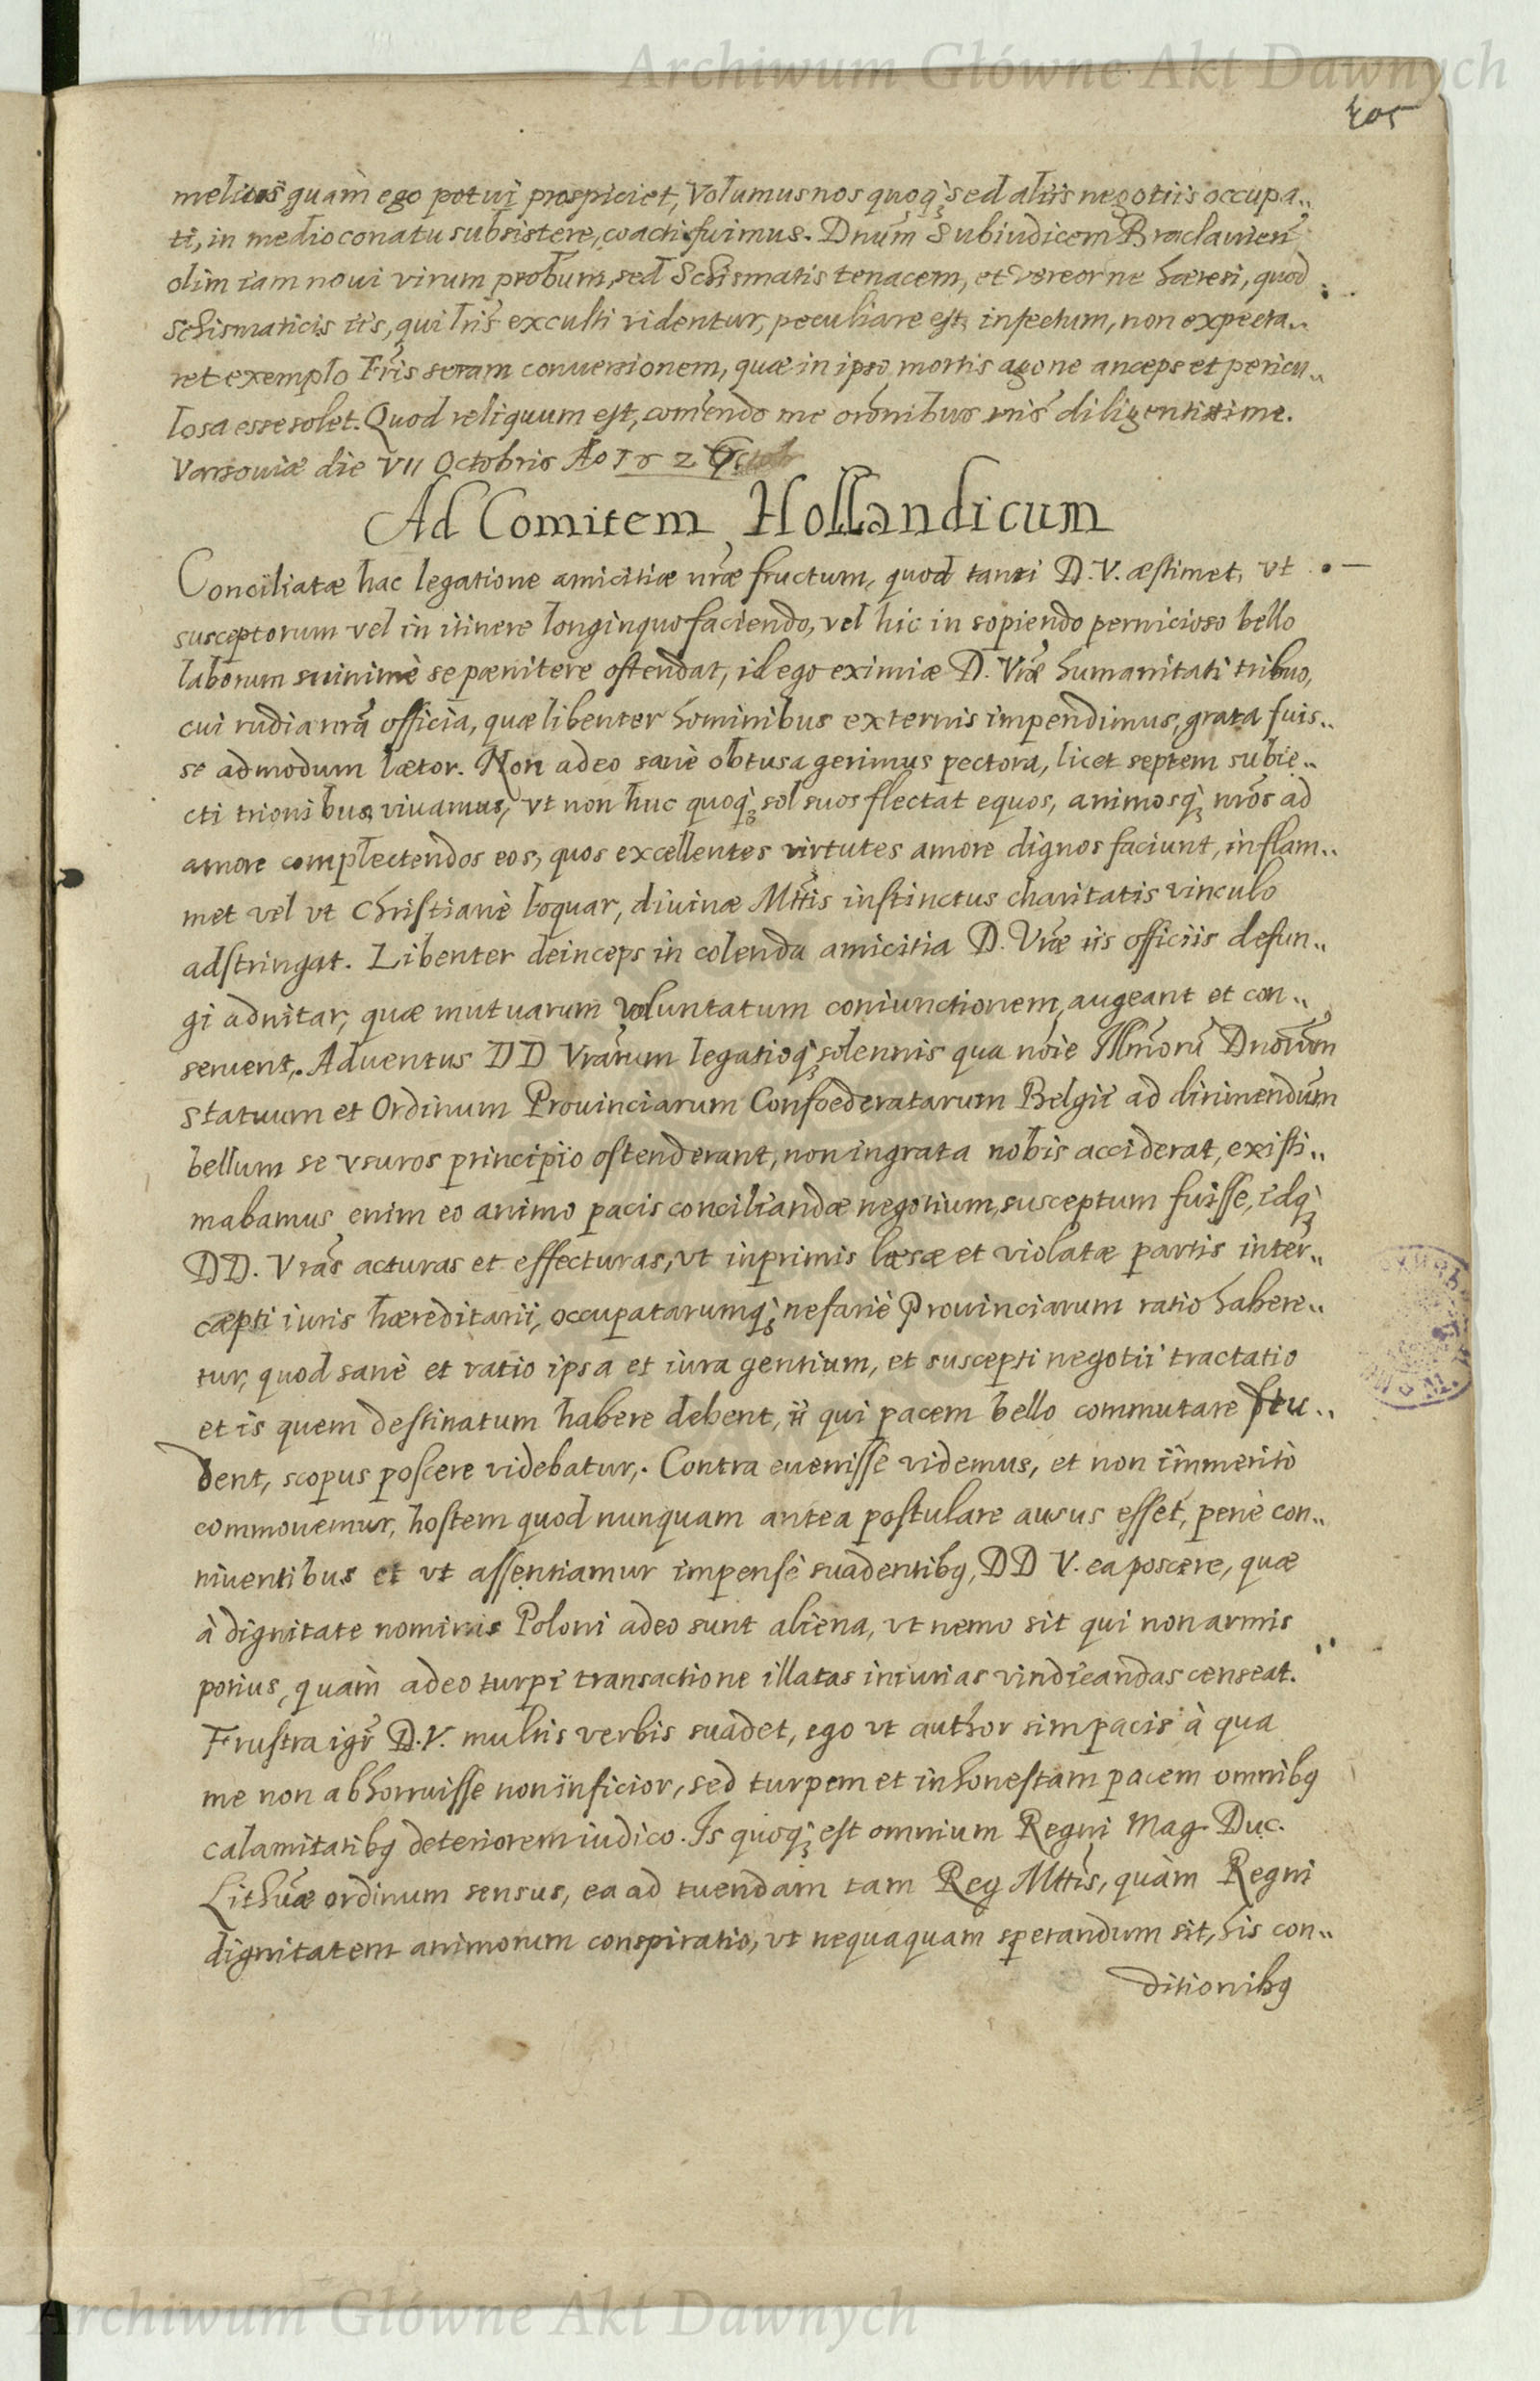 Archiwum Główne Akt Dawnych
405
meliús quàm ego potui prospiciet, Volumus nos quoq; sed aliis negotiis occupa„
ti, in medio conatu subsistere, coacti fuimus. Dnum Subiudicem Braclauien
olim iam noui virum probum, sed Schismatis tenacem, et vereor ne hæresi, quod
Schismaticis iis, qui lris exculti videntur, peculiare est, infectum, non expecta„
ret exemplo Fris seram conuersionem, quæ in ipso mortis agone anceps et pericu„
losa esse solet. Quod reliquum est, comendo me oronibus mis diligentissime.
Varsouiæ die VII Octobris Ao
Ad Comitem Hollandicum
Conciliatæ hac legatione amicitiæ nræ fructum, quod tanti D. V. æstimet, vt
susceptorum vel in itinere longinquo faciendo, vel hic in sopiendo pernicioso bello
laborum minimè se pænitere ostendat, id ego eximiæ D. Vræ humanitati tribuo,
cui rudia nra officia, quæ libenter hominibus externis impendimus, grata fuis„
se admodum lætor. Non adeo sanè obtusa gerimus pectora, licet septem subie„
cti trionibus viuamus, vt non huc quoq; sol suos flectat equos, animosq; nros ad
amore complectendos eos, quos excellentes virtutes amore dignos faciunt, inflam„
met vel vt Christianè loquar, diuinæ Mttis instinctus charitatis vinculo
adstringat. Libenter deinceps in colenda amicitia D. Vræ iis officiis defun„
gi adnitar, quæ mutuarum voluntatum coniunctionem augeant et con„
seruent. Aduentus DD Vrarum legatioq; solennis qua noie Illmoru Dnorum
Statuum et Ordinum Prouinciarum Confoederatarum Belgii ad dirimendum
bellum se vsuros principio ostenderant, non ingrata nobis acciderat, existi„
mabamus enim eo animo pacis conciliandæ negotium susceptum fuisse, idq;
DD. Vras acturas et effecturas, vt inprimis læsæ et violatæ partis inter„
cæpti iuris hæreditarii, occupatarumq; nefariè Prouinciarum ratio habere„
tur, quod sanè et ratio ipsa et iura gentium, et suscepti negotii tractatio
et is quem destinatum habere debent, ii qui pacem bello commutare stu„
dent, scopus poscere videbatur. Contra euenisse videmus, et non immeritò
commouemur, hostem quod nunquam antea postulare ausus esset, penè con„
niuentibus et vt assentiamur impensè suadentibq, DD V. ea poscere, quæ
à dignitate nominis Poloni adeo sunt aliena, vt nemo sit qui non armis
potius, quàm adeo turpi transactione illatas iniurias vindicandas censeat.
Frustra igr D. V. multis verbis suadet, ego vt author sim pacis à qua
me non abhorruisse non inficior, sed turpem et inhonestam pacem omnibq
calamitatibq deteriorem iudico. Is quoq; est omnium Regni Mag. Duc.
Lithuæ ordinum sensus, ea ad tuendam tam Reg Mttis, quàm Regni
dignitatem animorum conspiratio, vt nequaquam sperandum sit, his con„
ditionibq
Archiwum Główne Akt Dawnych